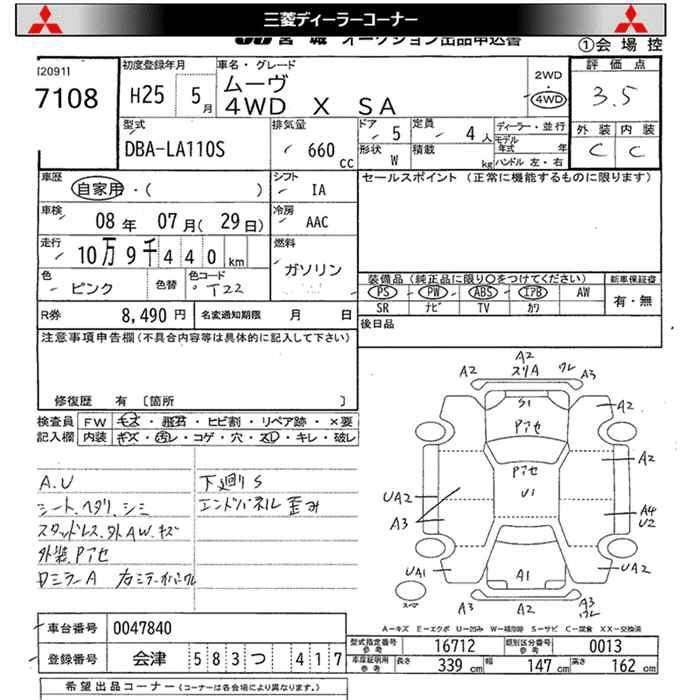 三菱ディーラーコーナー
JU 宮城 オークション出品申込書
①会場控
[2091]
7108
初度登録年月
H25 5月
車名・グレード
ムーヴ
4WD X SA
2WD
・
4WD
評価点
3.5
外装 内装
C C
型式
DBA-LA110S
排気量
660 cc
ドア 5
形状 W
定員 4人
積載 kg
ディーラー・並行
モデル年式 年
ハンドル 左・右
車歴
自家用・( )
シフト
IA
セールスポイント (正常に機能するものに限ります)
車検
08年 07月(29日)
冷房
AAC
走行
10万9千440km
燃料
ガソリン
色
ピンク
色替
色コード
T22
装備品 (純正品に限り○をつけてください)
新車保証書
PS PW ABS エアB AW
SR ナビ TV カワ
有・無
R券 8,490円
名変通知期限 月 日
後日品
注意事項申告欄(不具合内容等は具体的に記入して下さい)
修復歴 有 〔箇所 〕
検査員記入欄
FW キズ・飛石・ヒビ割・リペア跡・×要
内装 キズ・汚レ・コゲ・穴・スレ・キレ・破レ
A.U
シート、ヘタリ、シミ
スタッドレス、外AW、キズ
外装、Pアセ
下廻りS
エンドパネル 歪み
A2
スリA ワレ
A2 A3
S1
Pアセ
A2
Pアセ
U1
A2
UA2
A3
A4
U2
UA1
A1
UA2
スペア
A3 A2 A3
ワレ
A-キズ E-エクボ U-凹み W-補修跡 S-サビ C-腐食 XX-交換済
車台番号 0047840
登録番号 会津 583 つ 417
型式指定番号 参考 16712
類別区分番号 参考 0013
車庫証明用 参考 長さ 339cm 幅 147cm 高さ 162cm
希望出品コーナー(コーナーは各会場により異なります。)